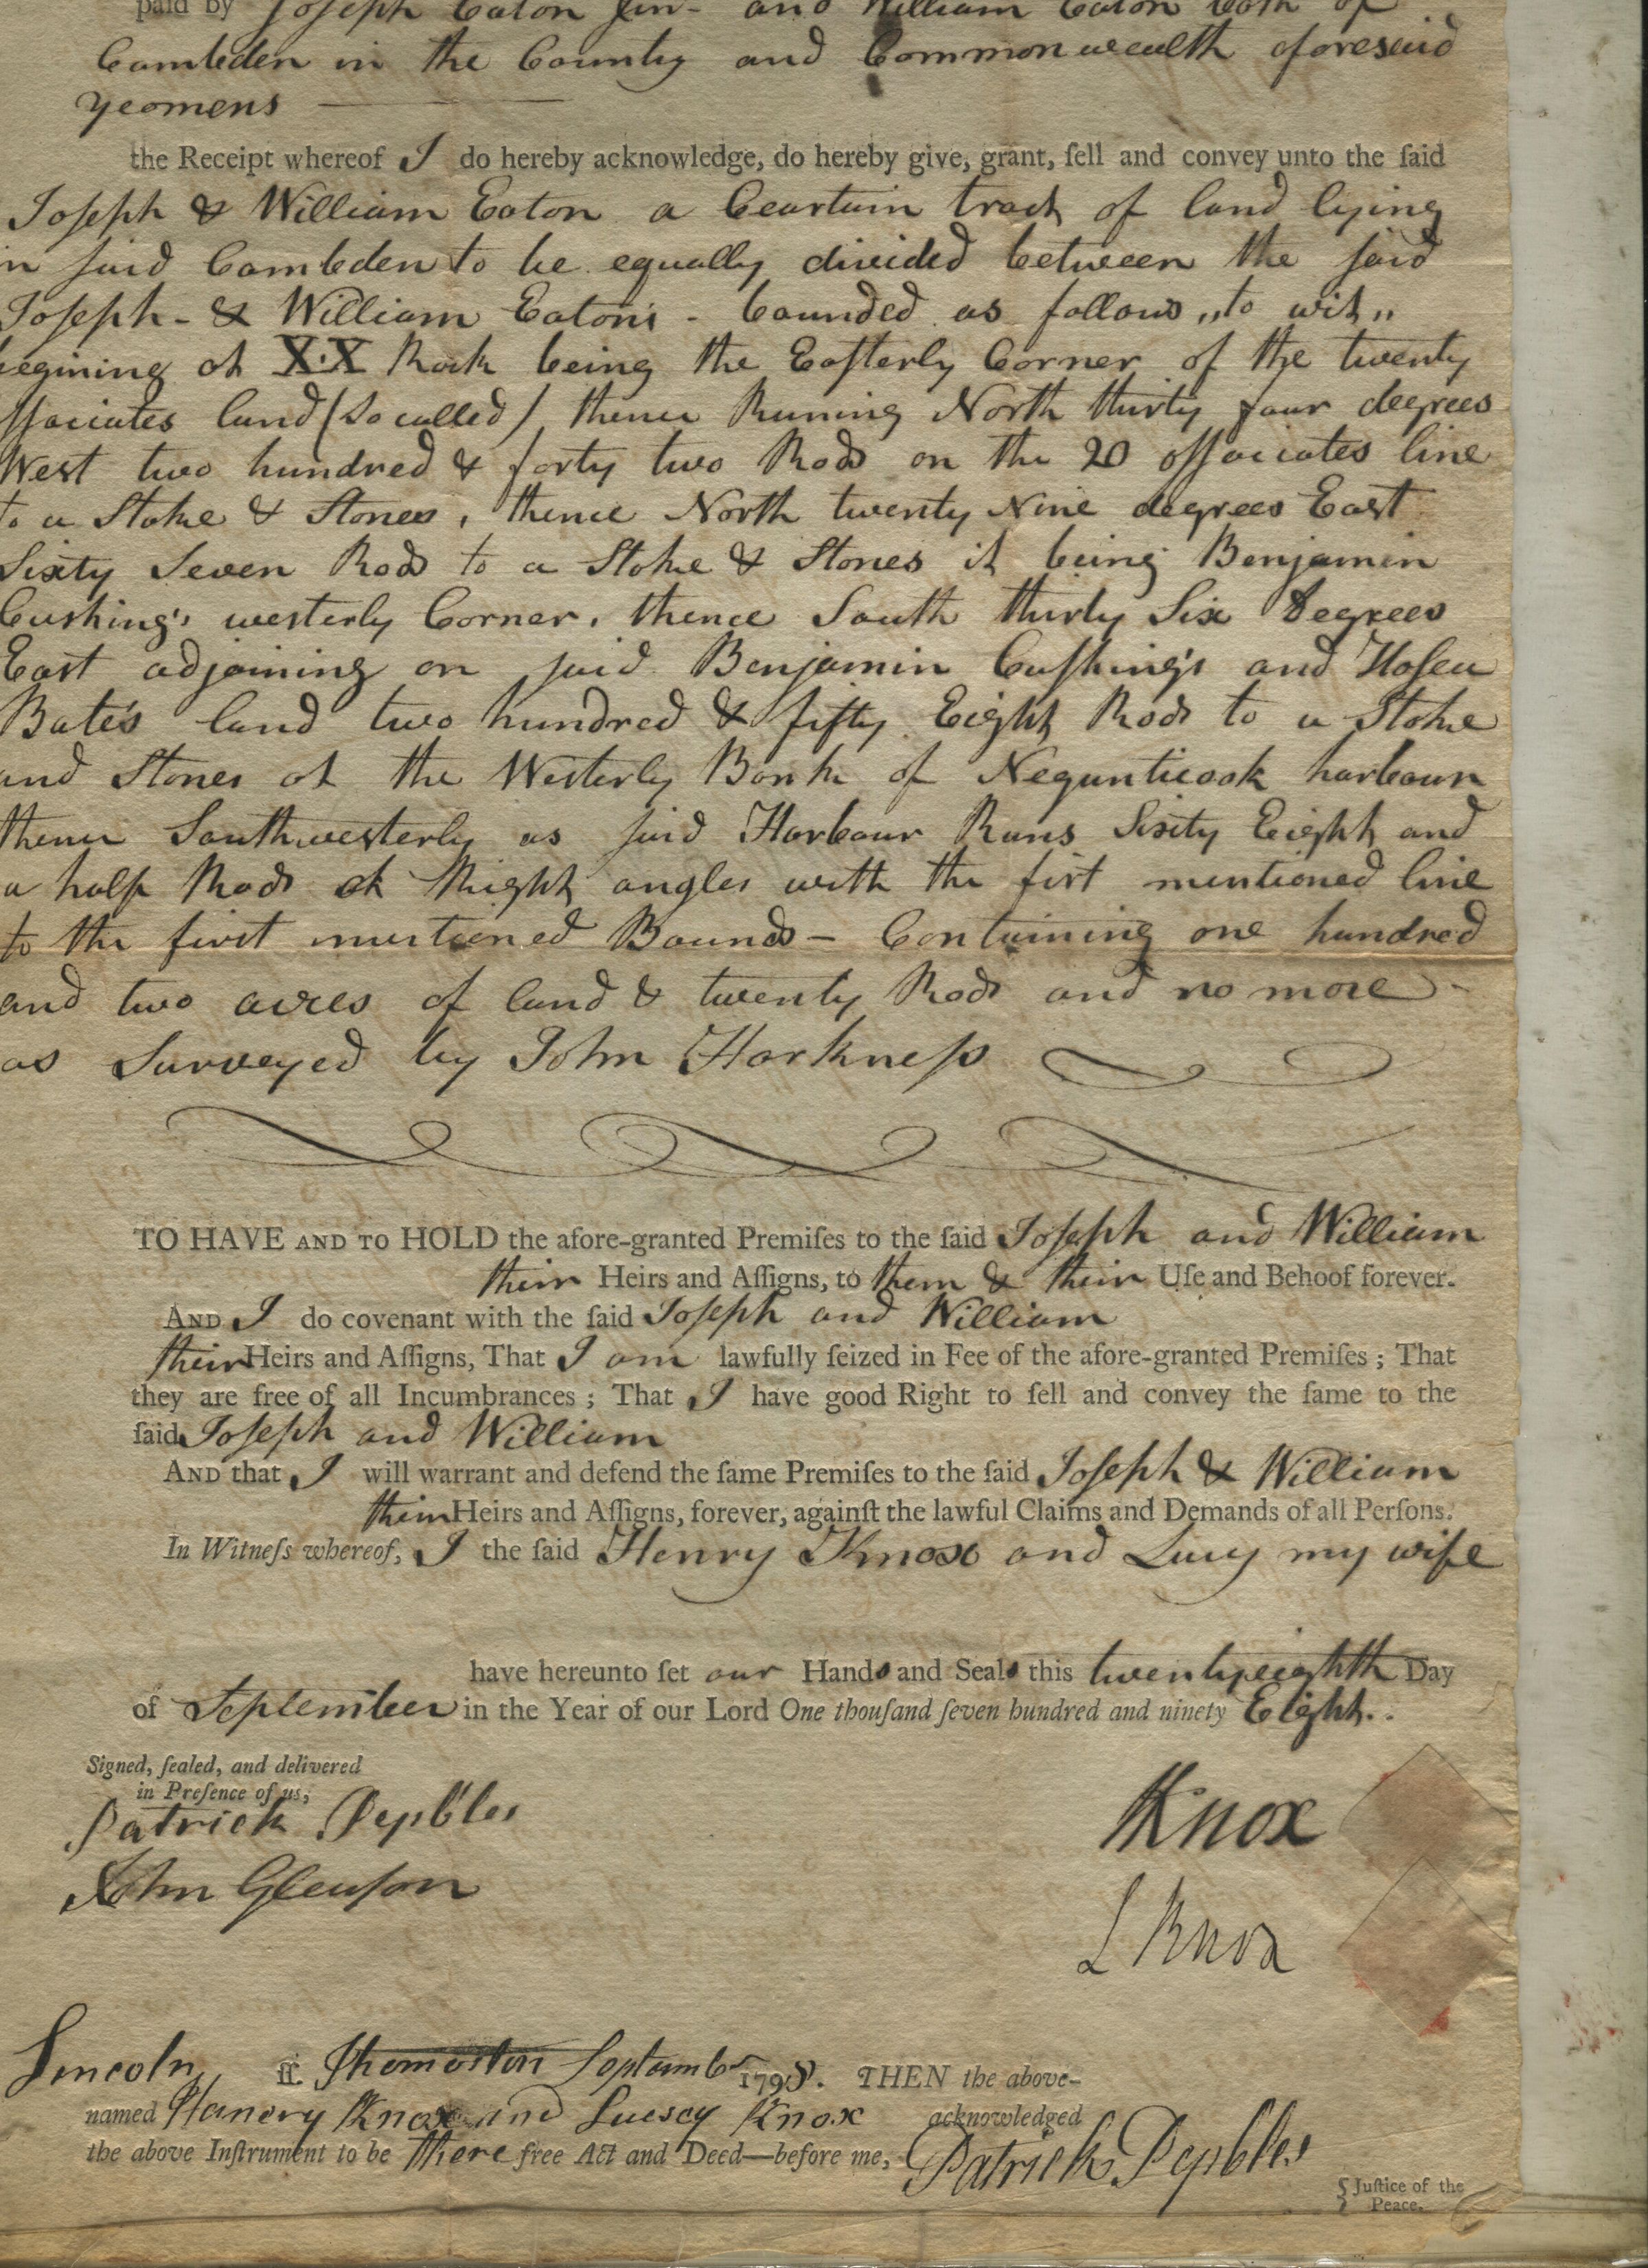 paid by Joseph Eaton Jun- and William Eaton both of
Cambden in the County and Commonwealth aforesaid
yeomens
the Receipt whereof I do hereby acknowledge, do hereby give, grant, ſell and convey unto the ſaid
Joſeph & William Eaton a Ceartain tract of land lying
in ſaid Cambden to be equally divided between the ſaid
Joſeph - & William Eaton's - bounded as follows ,,to wit,,
begining at X·X Rock being the Eaſterly Corner of the twenty
aſſociates land (So called) thence Runing North thirty four degrees
West two hundred & forty two Rods on the 20 aſſociates line
to a Stake & Stones, thence North twenty Nine degrees East
Sixty Seven Rods to a Stake & Stones it being Benjamin
Cushing's westerly Corner, thence South thirty Six Degrees
East adjoining on ſaid Benjamin Cuſhing's and Hoſea
Bate's land two hundred & fifty Eight Rods to a Stake
and Stones at the Westerly Bank of Negunticook harbour
thence Southwesterly as ſaid Harbour Runs Sixity Eight and
a half Rods at Right angles with the firt mentioned line
to the first mentioned Bounds - Containing one hundred
and two acres of land & twenty Rods and no more -
as Surveyed by John Harkneſs
TO HAVE AND TO HOLD the afore-granted Premiſes to the ſaid Joſeph and William
their Heirs and Aſſigns, to them & their Uſe and Behoof forever.
AND I do covenant with the ſaid Joſeph and William
their Heirs and Aſſigns, That I am lawfully ſeized in Fee of the afore-granted Premiſes ; That
they are free of all Incumbrances ; That I have good Right to ſell and convey the ſame to the
ſaid Joſeph and William
AND that I will warrant and defend the ſame Premiſes to the ſaid Joſeph & William
their Heirs and Aſſigns, forever, againſt the lawful Claims and Demands of all Perſons.
In Witneſs whereof, I the ſaid Henry Knox and Lucy my wife
have hereunto ſet our Hands and Seals this twentyeighth Day
of September in the Year of our Lord One thouſand ſeven hundred and ninety Eight..
Signed, ſealed, and delivered
in Preſence of us,
Patrick Pepbles
John Gleaſon
HKnox
L Knox
Lincoln, ſſ. Thomaston Soptumbr 1798. THEN the above-
named Hanery Knox and Luescy Knox acknowledged
the above Inſtrument to be there free Act and Deed—before me,
Patrick Pepbles
Juſtice of the
Peace.